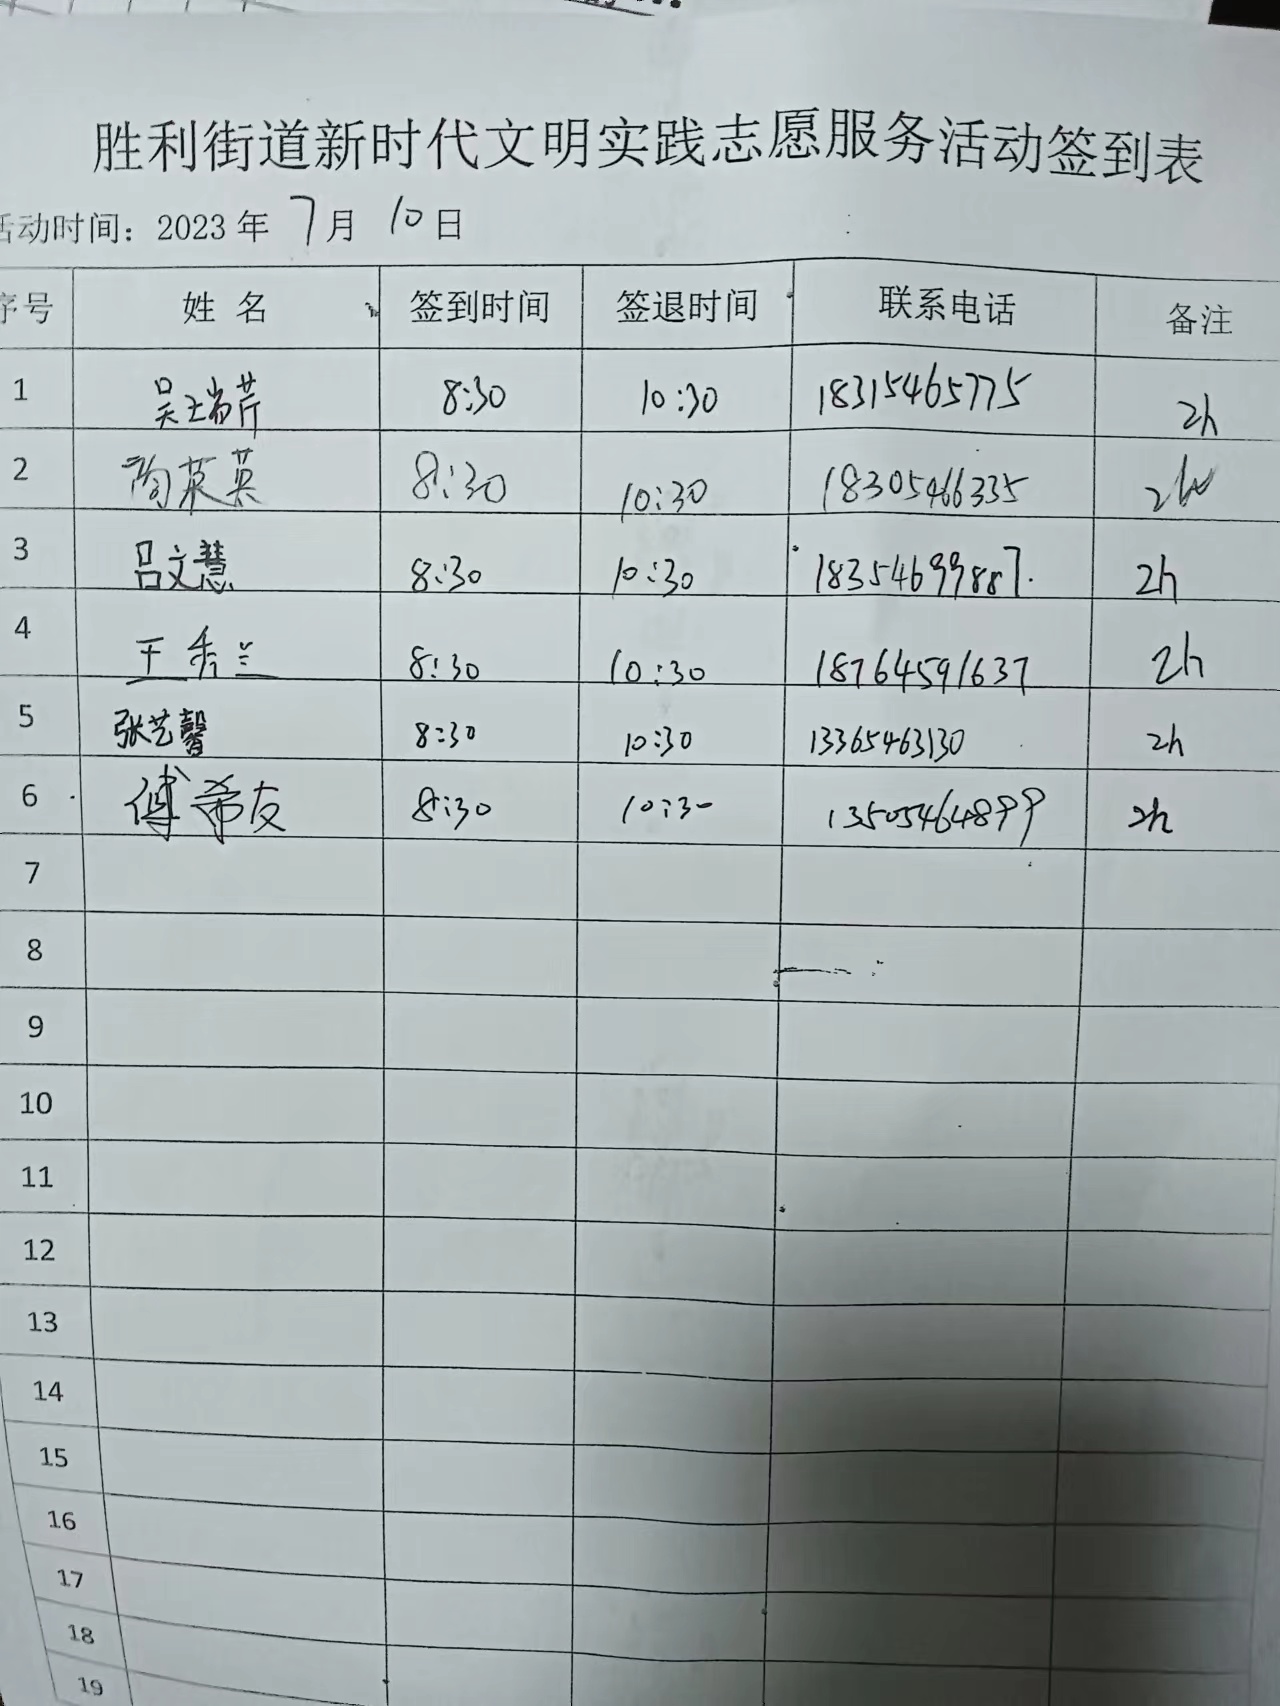 胜利街道新时代文明实践志愿服务活动签到表
活动时间：2023年 7月 10日
序号 姓 名 签到时间 签退时间 联系电话 备注
1 吴瑞芹 8:30 10:30 18315465775 2h
2 陶菜英 8:30 10:30 18305466335 2h
3 吕文慧 8:30 10:30 18354699887 2h
4 王秀兰 8:30 10:30 18764591637 2h
5 张艺馨 8:30 10:30 13365463130 2h
6 傅希友 8:30 10:30 13505464899 2h
7
8
9
10
11
12
13
14
15
16
17
18
19